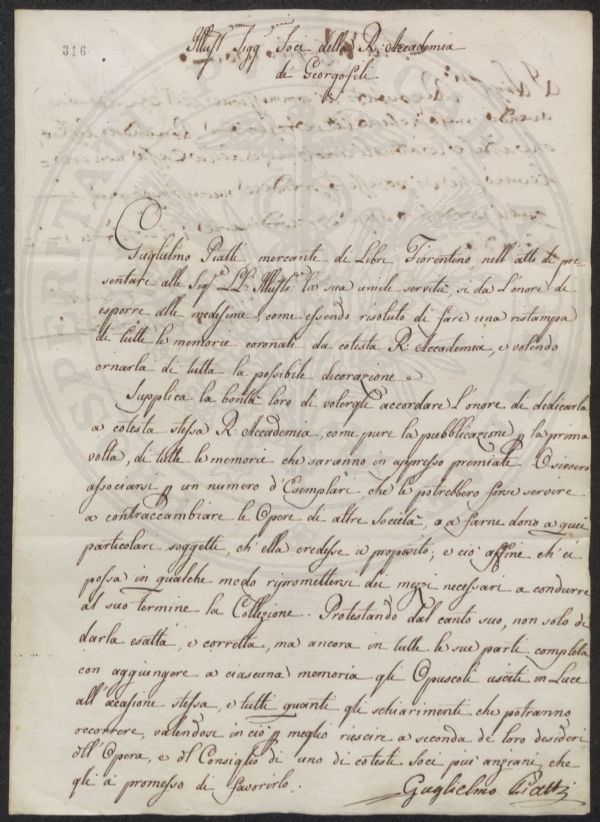 316
Illust.mi Sigg.ri Soci della R: Accademia
de' Georgofili
Guglielmo Piatti mercante di Libri Fiorentino nell'atto di pre
sentare alle Sig.e LL: Illustr.e la sua umile servitù, si da l'onore di
esporre alle medesime come essendo risoluto di fare una ristampa
di tutte le memorie coronate da cotesta R: Accademia, e volendo
ornarla di tutta la possibile decorazione.
Supplica la bontà loro di volergli accordare l'onore di dedicarla
a cotesta stessa R: Accademia, come pure la pubblicazione p la prima
volta, di tutte le memorie che saranno in appresso premiate. O sivvero
associarsi p un numero d'Esemplari che le potrebbero forse servire
a contraccambiare le Opere di altre Società, o a farne dono a quei
particolari soggetti, ch'ella credesse a proposito; e ciò affine ch'ei
possa in qualche modo ripromettersi dei mezzi necessari a condurre
al suo termine la Collezione. Protestando dal canto suo, non solo di
darla esatta, e corretta, ma ancora in tutte le sue parti completa
con aggiungere a ciascuna memoria gli Opuscoli usciti in Luce
all'occasione stessa, e tutti quanti gli schiarimenti che potranno
occorrere, valendosi in ciò p meglio riuscire a seconda de loro desideri
dll'Opera, e dl Consiglio di uno di cotesti Soci più anziani, che
gli à promesso di favorirlo.
Guglielmo Piatti